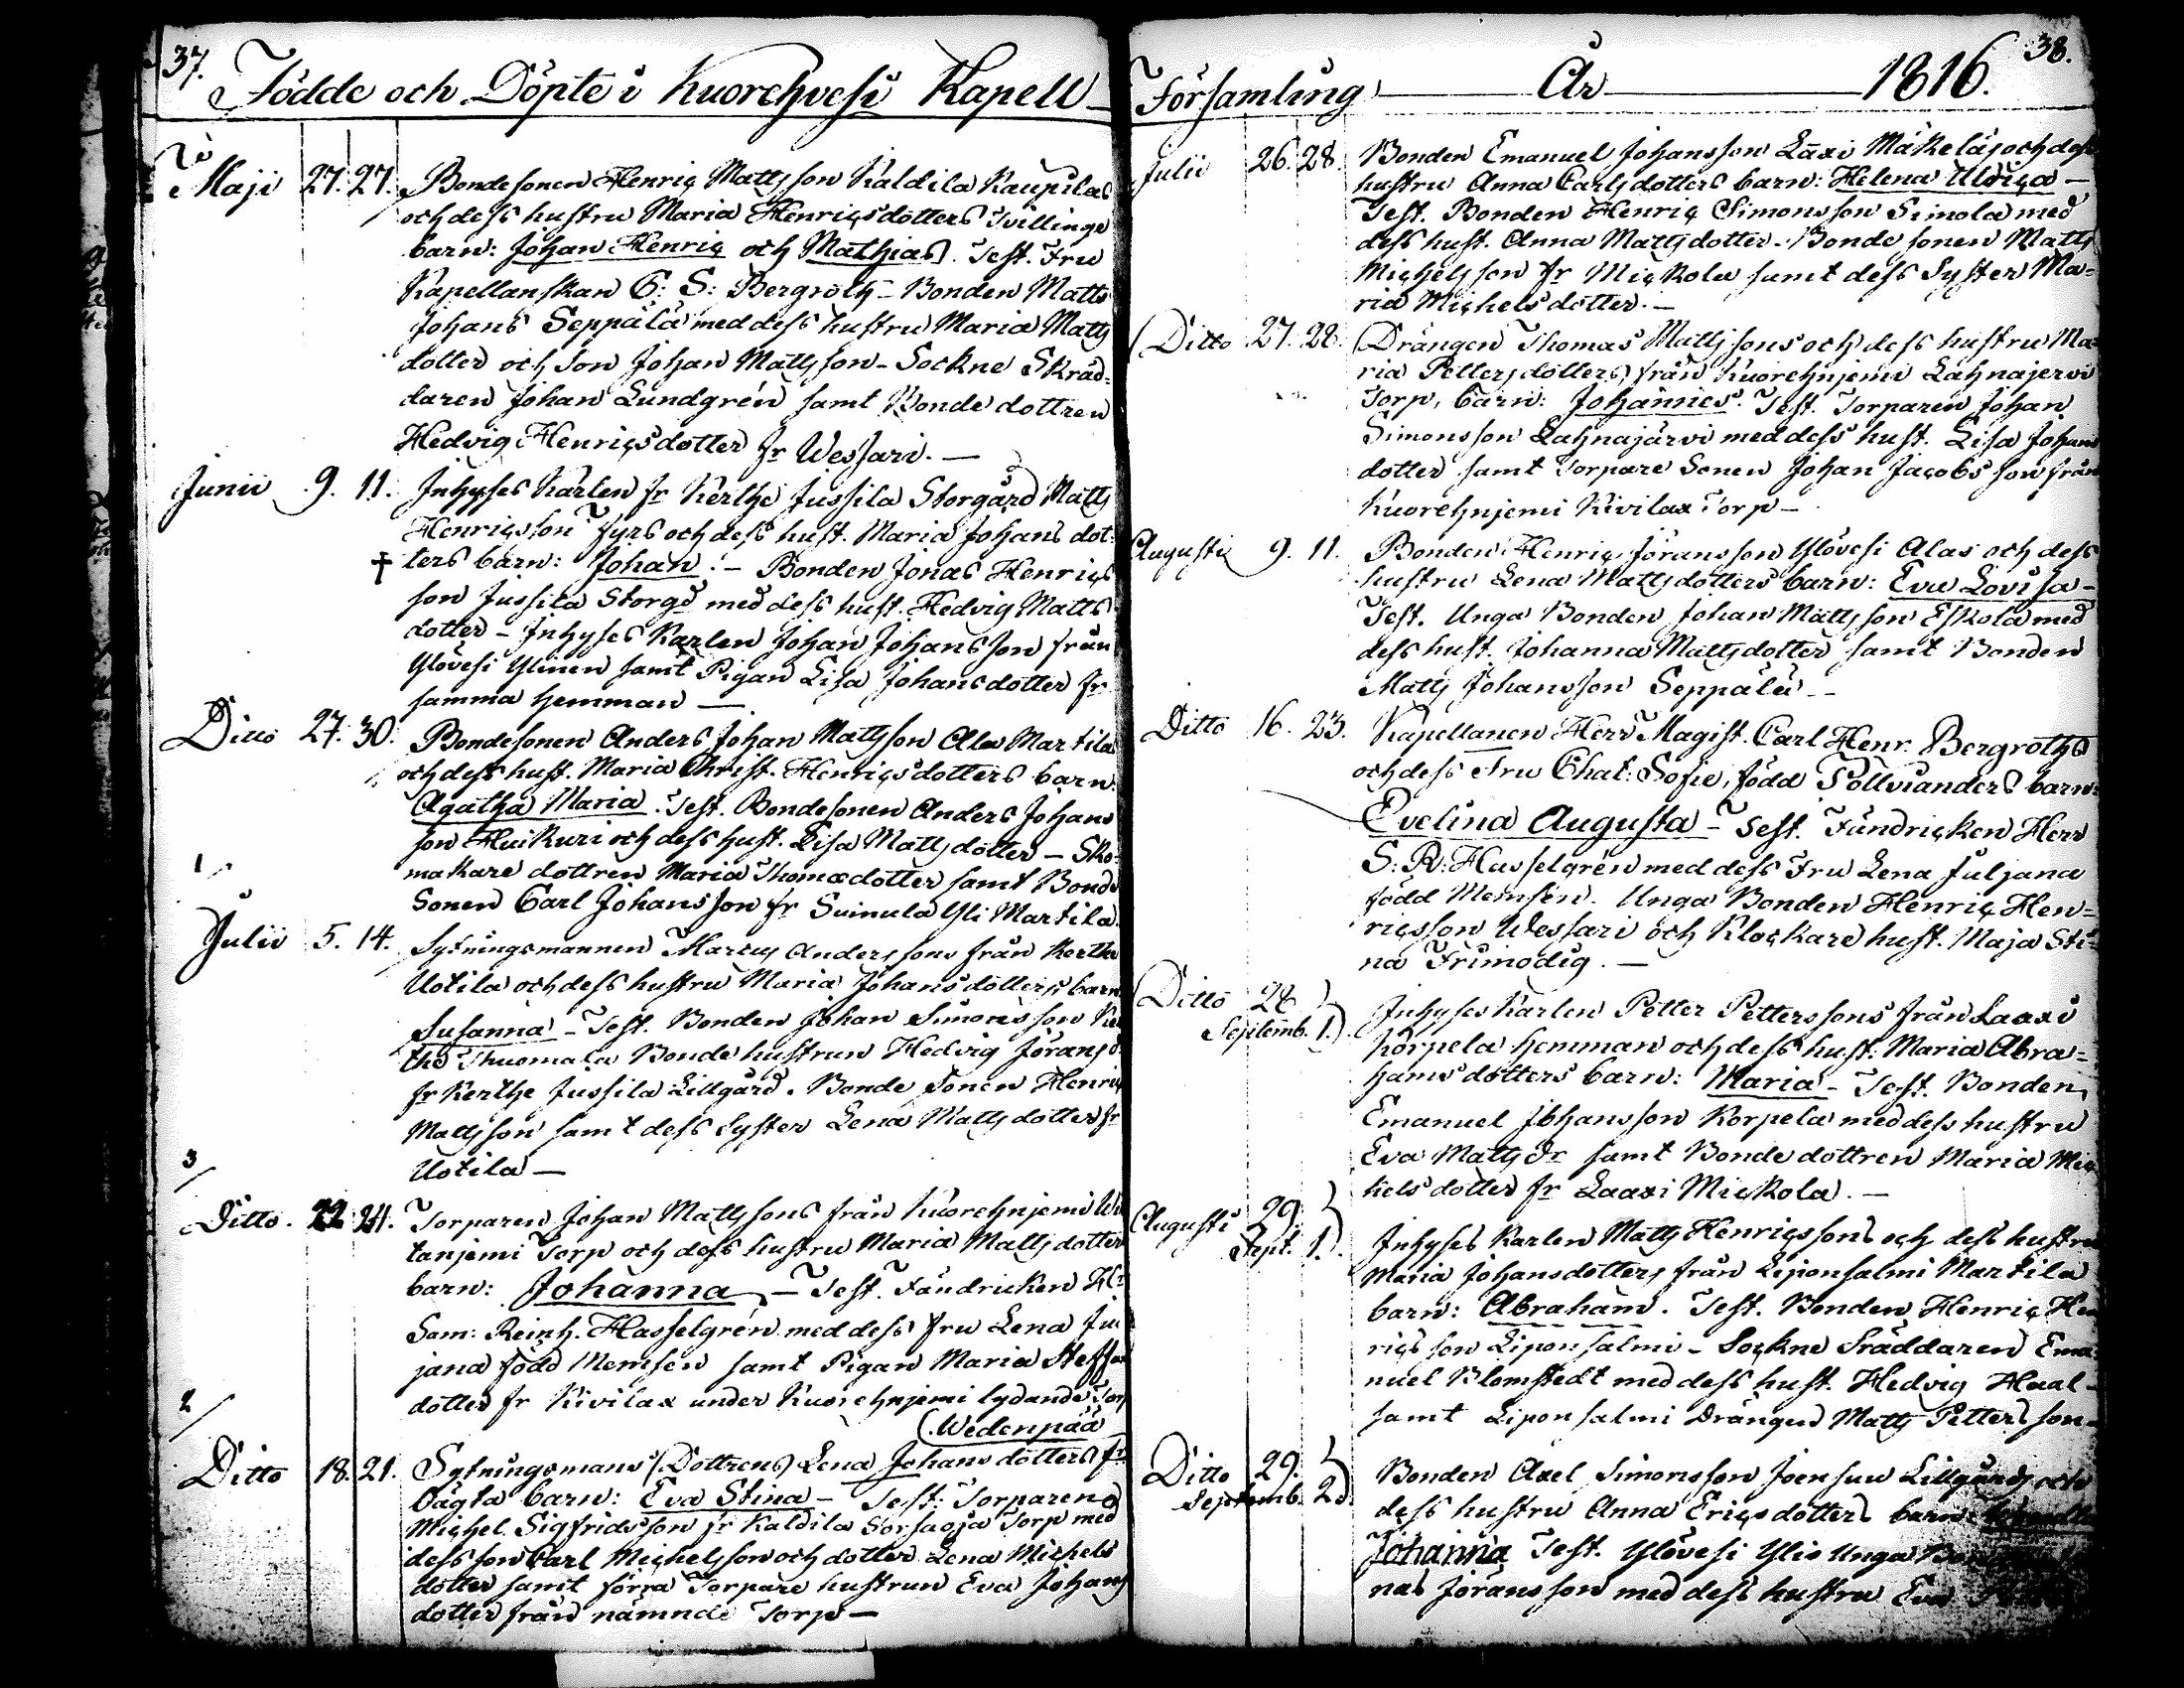 37.
Födde och Döpte i Kuorehvesi Kapell
Maji 27. 27. Bondesonen Henric Mattsson Kaldila Kaupilas
och dess hustru Maria Henricsdotters Tvillinge
barn: Johan Henric och Mathias. Test. Fru
Kapellanskan C: S: Bergroth - Bonden Matts
Johans Seppälä med dess hustru Maria Matts
dotter och Son Johan Mattsson - Sockne Skräd=
daren Johan Lundgrén samt Bonde dottren
Hedvig Henricsdotter fr Wessari. —
Junii 9. 11. Inhyses Karlen fr Kerthe Jussila Storgård Matts
Henricsson Fyrs och dess hust. Maria Johans dot=
† ters barn: Johan. - Bonden Jonas Henrics
son Jussila Storgd med dess hust. Hedvig Matts
dotter - Inhyses Karlen Johan Johansson från
Ylövesi Ylinen samt Pigan Lisa Johansdotter fr
samma Hemman —
Ditto 27. 30. Bondesonen Anders Johan Mattsson Ala Martila
och dess hust. Maria Christ. Henricsdotters barn:
Agatha Maria. Test. Bondesonen Anders Johans
son Huikuri och dess hust. Lisa Mattsdotter - Sko=
makare dottren Maria Thomasdotter samt Bonde
Sonen Carl Johansson fr Suinula Yli Martila.
1/
Julii 5. 14. Sytningsmannen Marcus Anderssons från Kerthe
Uotila och dess hustru Maria Johansdotters barn
Susanna - Test. Bonden Johan Simonsson Ker
the Thuomala Bonde hustrun Hedvig Jöransd.
fr Kerthe Jussila Lillgård. Bonde Sonen Henric
Mattsson samt dess Syster Lena Mattsdotter fr
Uotila —
3/
Ditto. 22 24. Torparen Johan Mattssons från Kuorehnjemi
tanjemi Torp och dess hustru Maria Mattsdotter
barn: Johanna - Test. Fändricken Hr
Sam: Reinh. Hasselgrén med dess fru Lena Ju
jana född Memsén samt Pigan Maria Steffans
dotter fr Kivilax under Kuorehnjemi lydande Torp
2/
(Wedenpää
Ditto 18. 21. Sytningsmans (Dottrens) Lena Johansdotters fr
Vägta barn: Eva Stina - Test: Torparen
Michel Sigfridsson fr Kaldila Sorsaoja Torp med
dess son Carl Michelsson och dotter Lena Michels
dotter samt förra Torpare hustrun Eva Johans
dotter från nämnde Torp —
38.
Församling År 1816.
Julii 26. 28. Bonden Emanuel Johansson Laxi Mäkeläs och dess
hustru Anna Carlsdotters barn: Helena Ulrica -
Test. Bonden Henric Simonsson Simola med
dess hust. Anna Mattsdotter - Bonde sonen Matts
Michelsson fr Mickola samt dess Syster Ma=
ria Michelsdotter. —
Ditto 27. 28. Drängen Thomas Mattssons och dess hustru Ma=
ria Pettersdotters från Kuorehnjemi Lahnajervi
Torp, barn: Johannes. Test. Torparen Johan
Simonsson Lahnajärvi med dess hust. Lisa Johans
dotter samt Torpare Sonen Johan Jacobsson från
Kuorehnjemi Kivilax Torp -
Augusti 9. 11. Bonden Henric Jöransson Ylövesi Alas och dess
hustru Lena Mattsdotters barn: Eva Lovisa -
Test. Unga Bonden Johan Mattsson Eskola med
dess hust. Johanna Mattsdotter samt Bonden
Matts Johansson Seppälä -
Ditto 16. 23. Kapellanen Herr Magist. Carl Henr. Bergroths
och dess Fru Chat: Sofie, född Pollvianders barn:
Evelina Augusta - Test. Fändricken Herr
S: R: Hasselgrén med dess Fru Lena Juljana
född Memsén. Unga Bonden Henric Hen=
ricsson Wessari och Klockare hust. Maja Sti=
na Frimodig. —
Ditto 28
Septemb. 1. Inhyses Karlen Petter Petterssons från Laaxi
Korpela Hemman och dess hust: Maria Abra=
hamsdotters barn: Maria - Test. Bonden
Emanuel Johansson Korpela med dess hustru
Eva Matts Dr samt Bonde dottren Maria Mic
helsdotter fr Laaxi Mickola. —
Augusti 29.
Sept. 1. Inhyses Karlen Matts Henricssons och dess hustru
Maria Johansdotters från Liponsalmi Martila
barn: Abraham. Test. Bonden Henric Hen
ricsson Liponsalmi - Sockne Sräddaren Ema
nuel Blomstedt med dess hust. Hedvig Haal -
samt Liponsalmi Drängen Matts Petters son -
Ditto 29.
Septemb. 2. Bonden Axel Simonsson Joensuu Lillgårds och
dess hustru Anna Ericsdotters barn:
Johanna Test. Ylövesi Ylis Unga
nas Jöransson med dess hustru Eva